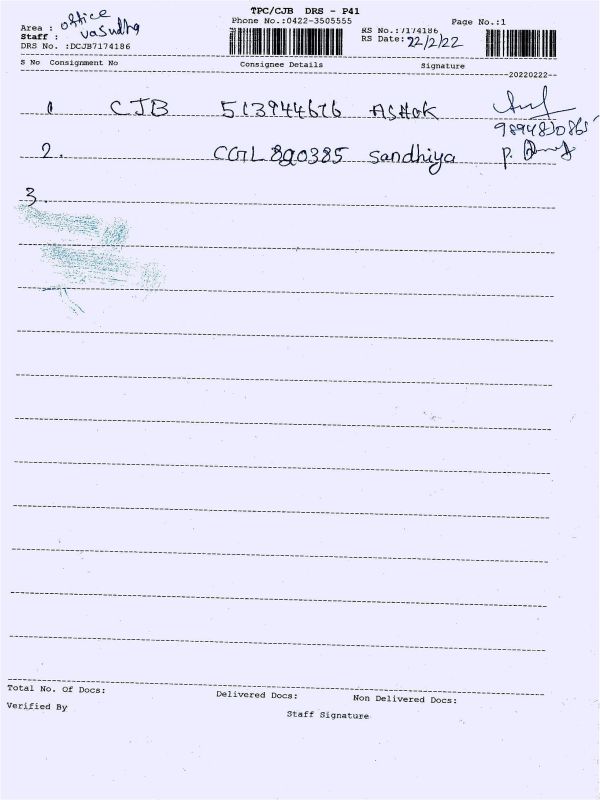 TPC/CJB DRS - P41
Area : office Phone No.:0422-3505555 Page No.:1
Staff : vasudha RS No.:7174186
DRS No. :DCJB7174186 RS Date: 22/2/22
S No Consignment No Consignee Details Signature
20220222
1 CJB 513944676 ASHOK
2. CGTL 890385 Sandhiya
3.
Total No. Of Docs: Delivered Docs: Non Delivered Docs:
Verified By Staff Signature